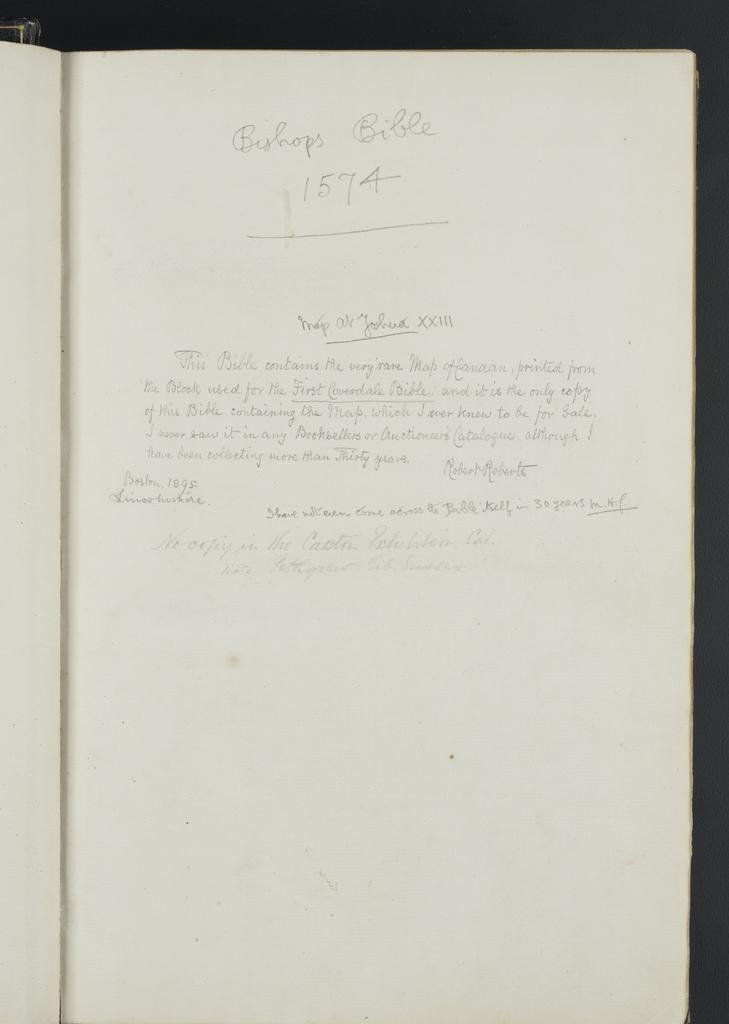 Bishops Bible
1574
Map at Joshua XXIII
This Bible contains the very rare Map of Canaan, printed from
the Block used for the First Coverdale Bible: and it is the only copy
of this Bible containing the Map, which I ever knew to be for Sale.
I never saw it in any Booksellers or Auctioneers Catalogue, although I
have been collecting more than Thirty years.
Robert Roberts
Boston. 1895.
Lincolnshire.
I have not even come across the Bible itself in 30 years
No copy in the Caxton Exhibition Cat.
Pettigrew Bib. Sussex